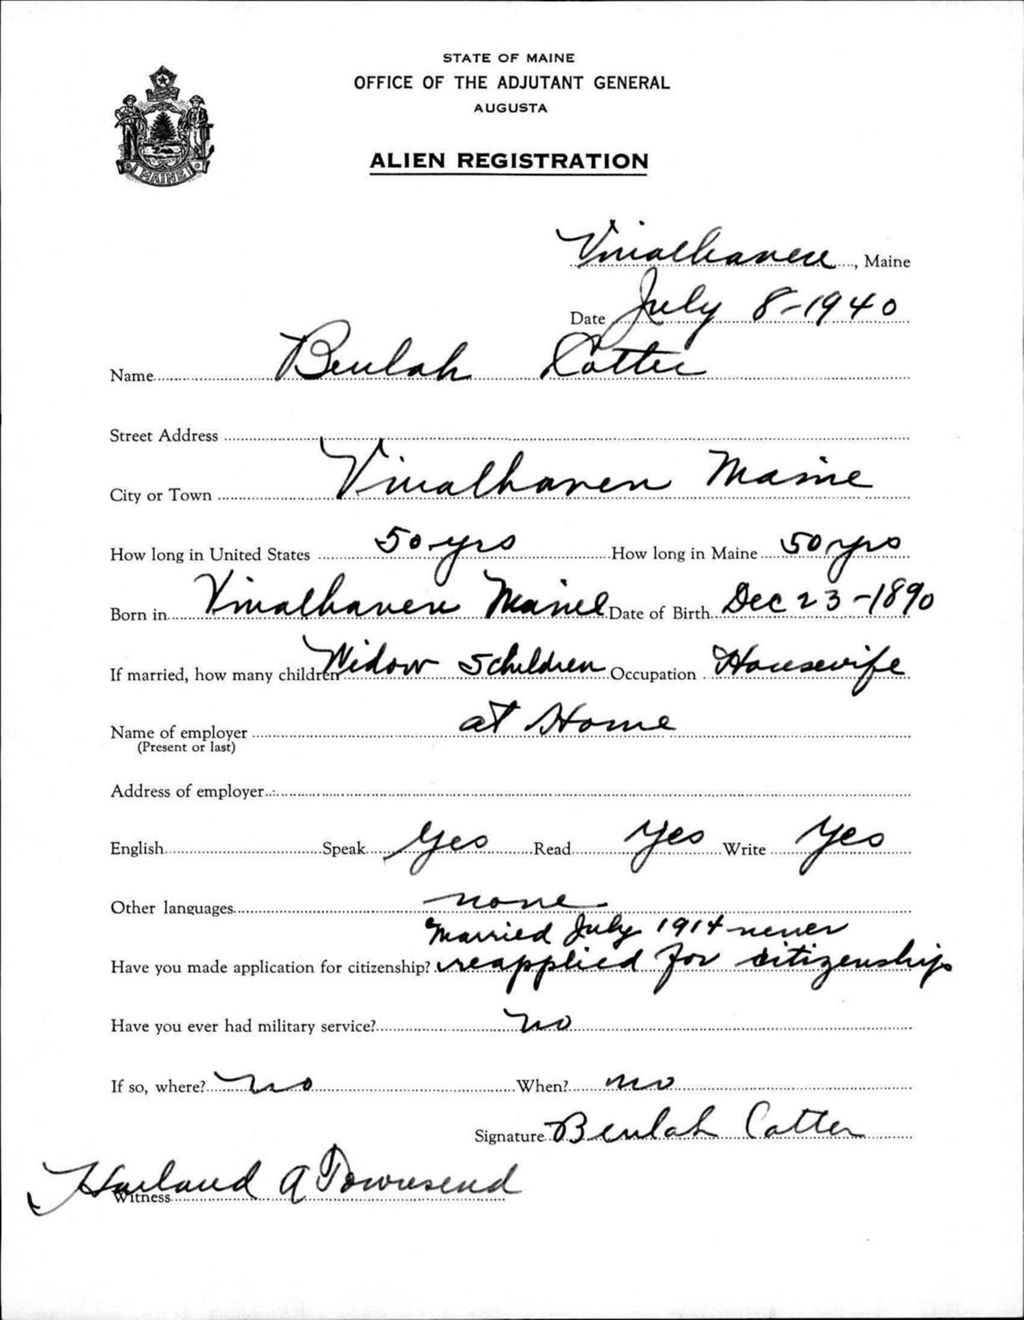 STATE OF MAINE
OFFICE OF THE ADJUTANT GENERAL
AUGUSTA
ALIEN REGISTRATION
MAINE
Vinalhaven, Maine
Date July 8-1940
Name Beulah Cotter
Street Address
City or Town Vinalhaven Maine
How long in United States 50 yrs How long in Maine 50 yrs
Born in Vinalhaven Maine Date of Birth Dec 23-1890
If married, how many children Widow 5 children Occupation Housewife
Name of employer at Home
(Present or last)
Address of employer
English Speak Yes Read Yes Write Yes
Other languages none
Married July 1914 never
Have you made application for citizenship? reapplied for citizenship
Have you ever had military service? no
If so, where? no When? no
Signature Beulah Cotter
Harland A Townsend
Witness